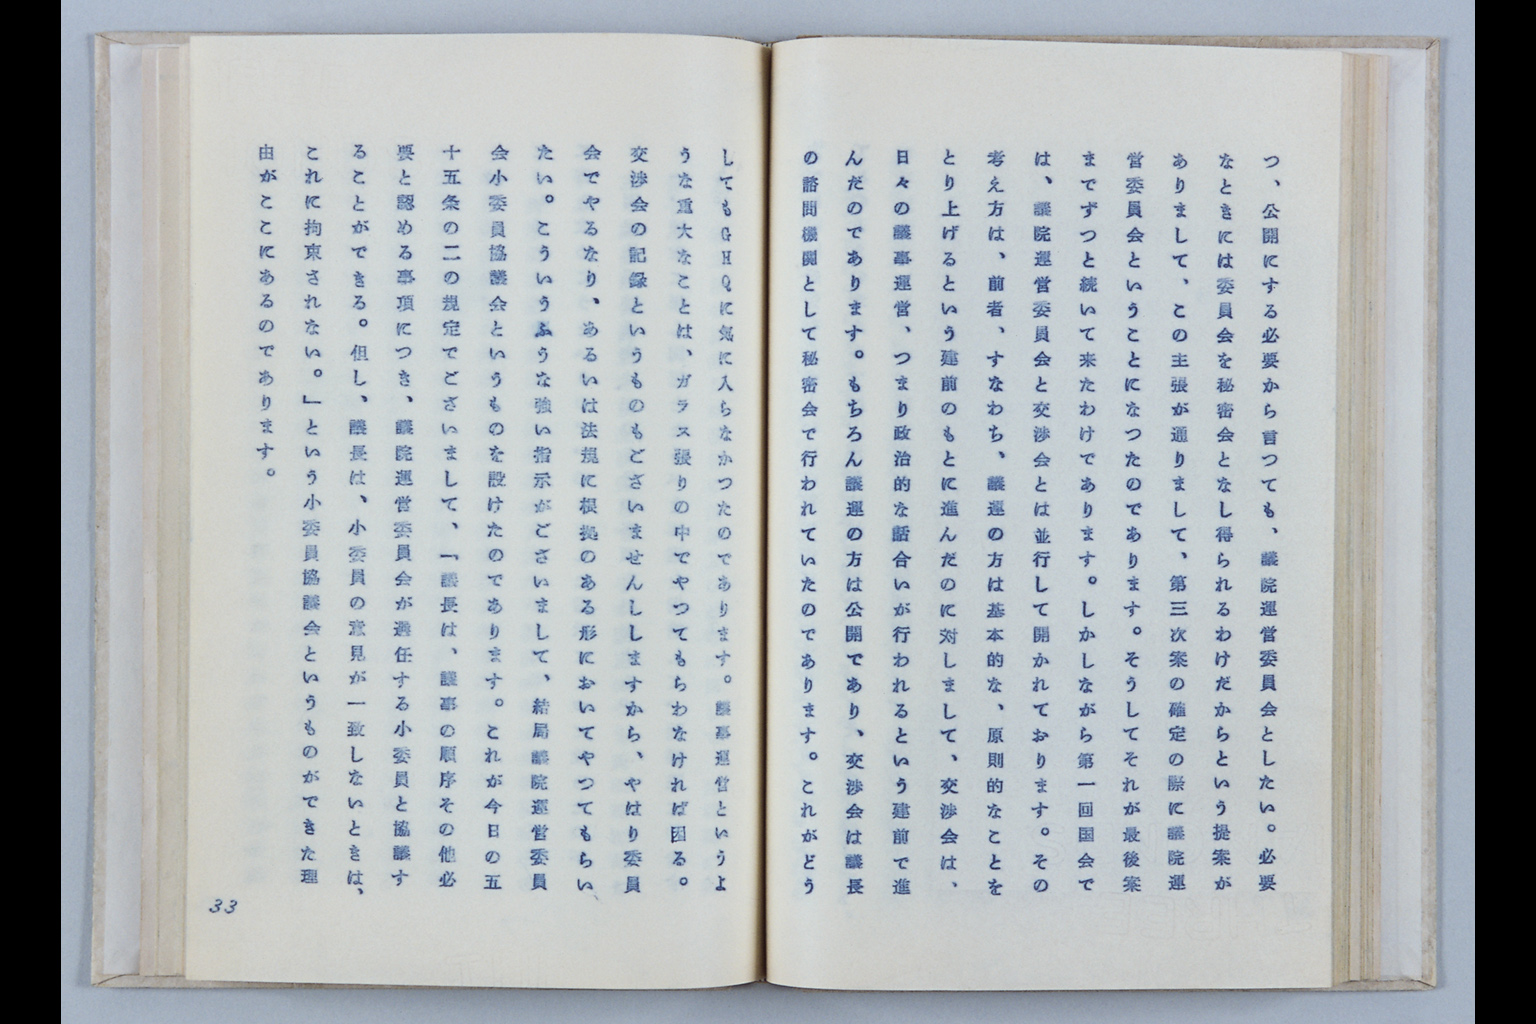 つ、公開にする必要から言つても、議院運営委員会としたい。必要
なときには委員会を秘密会となし得られるわけだからという提案が
ありまして、この主張が通りまして、第三次案の確定の際に議院運
営委員会ということになつたのであります。そうしてそれが最後案
までずつと続いて来たわけであります。しかしながら第一回国会で
は、議院運営委員会と交渉会とは並行して開かれております。その
考え方は、前者、すなわち、議運の方は基本的な、原則的なことを
とり上げるという建前のもとに進んだのに対しまして、交渉会は、
日々の議事運営、つまり政治的な話合いが行われるという建前で進
んだのであります。もちろん議運の方は公開であり、交渉会は議長
の諮問機関として秘密会で行われていたのであります。これがどう
してもGHQに気に入らなかつたのであります。議事運営というよ
うな重大なことは、ガラス張りの中でやつてもらわなければ困る。
交渉会の記録というものもございませんししますから、やはり委員
会でやるなり、あるいは法規に根拠のある形においてやつてもらい
たい。こういうふうな強い指示がございまして、結局議院運営委員
会小委員協議会というものを設けたのであります。これが今日の五
十五条の二の規定でございまして、「議長は、議事の順序その他必
要と認める事項につき、議院運営委員会が選任する小委員と協議す
ることができる。但し、議長は、小委員の意見が一致しないときは、
これに拘束されない。」という小委員協議会というものができた理
由がここにあるのであります。
33